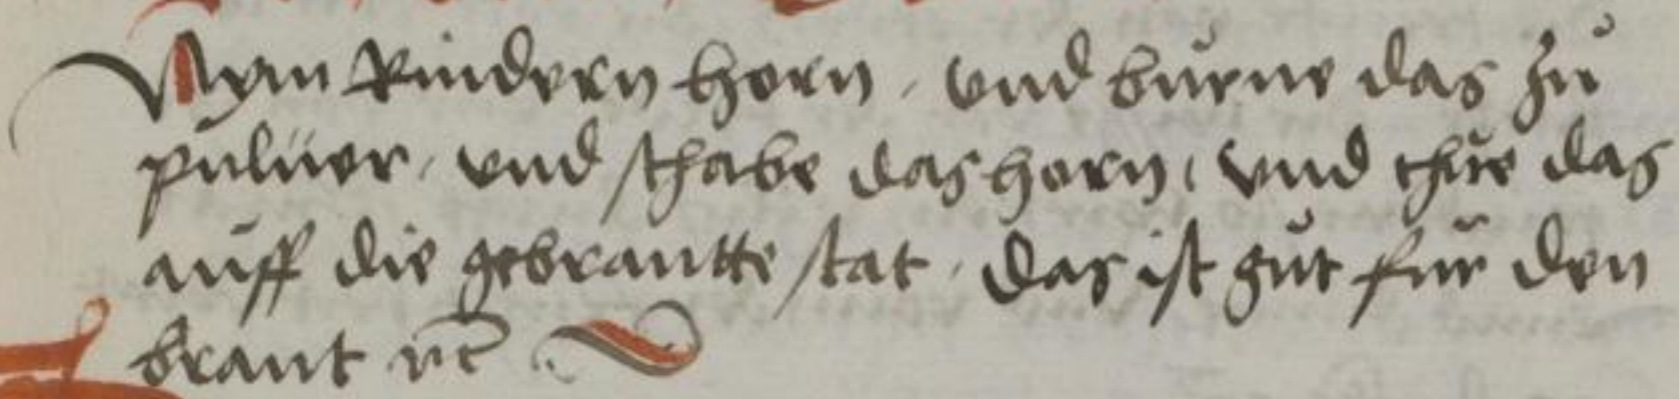 Nym Rindern horn / vnd bürne das zu
puluer / vnd schabe das horn / vnd thue das
auff die gebrantte stat / das ist gut für den
brant ꝛc